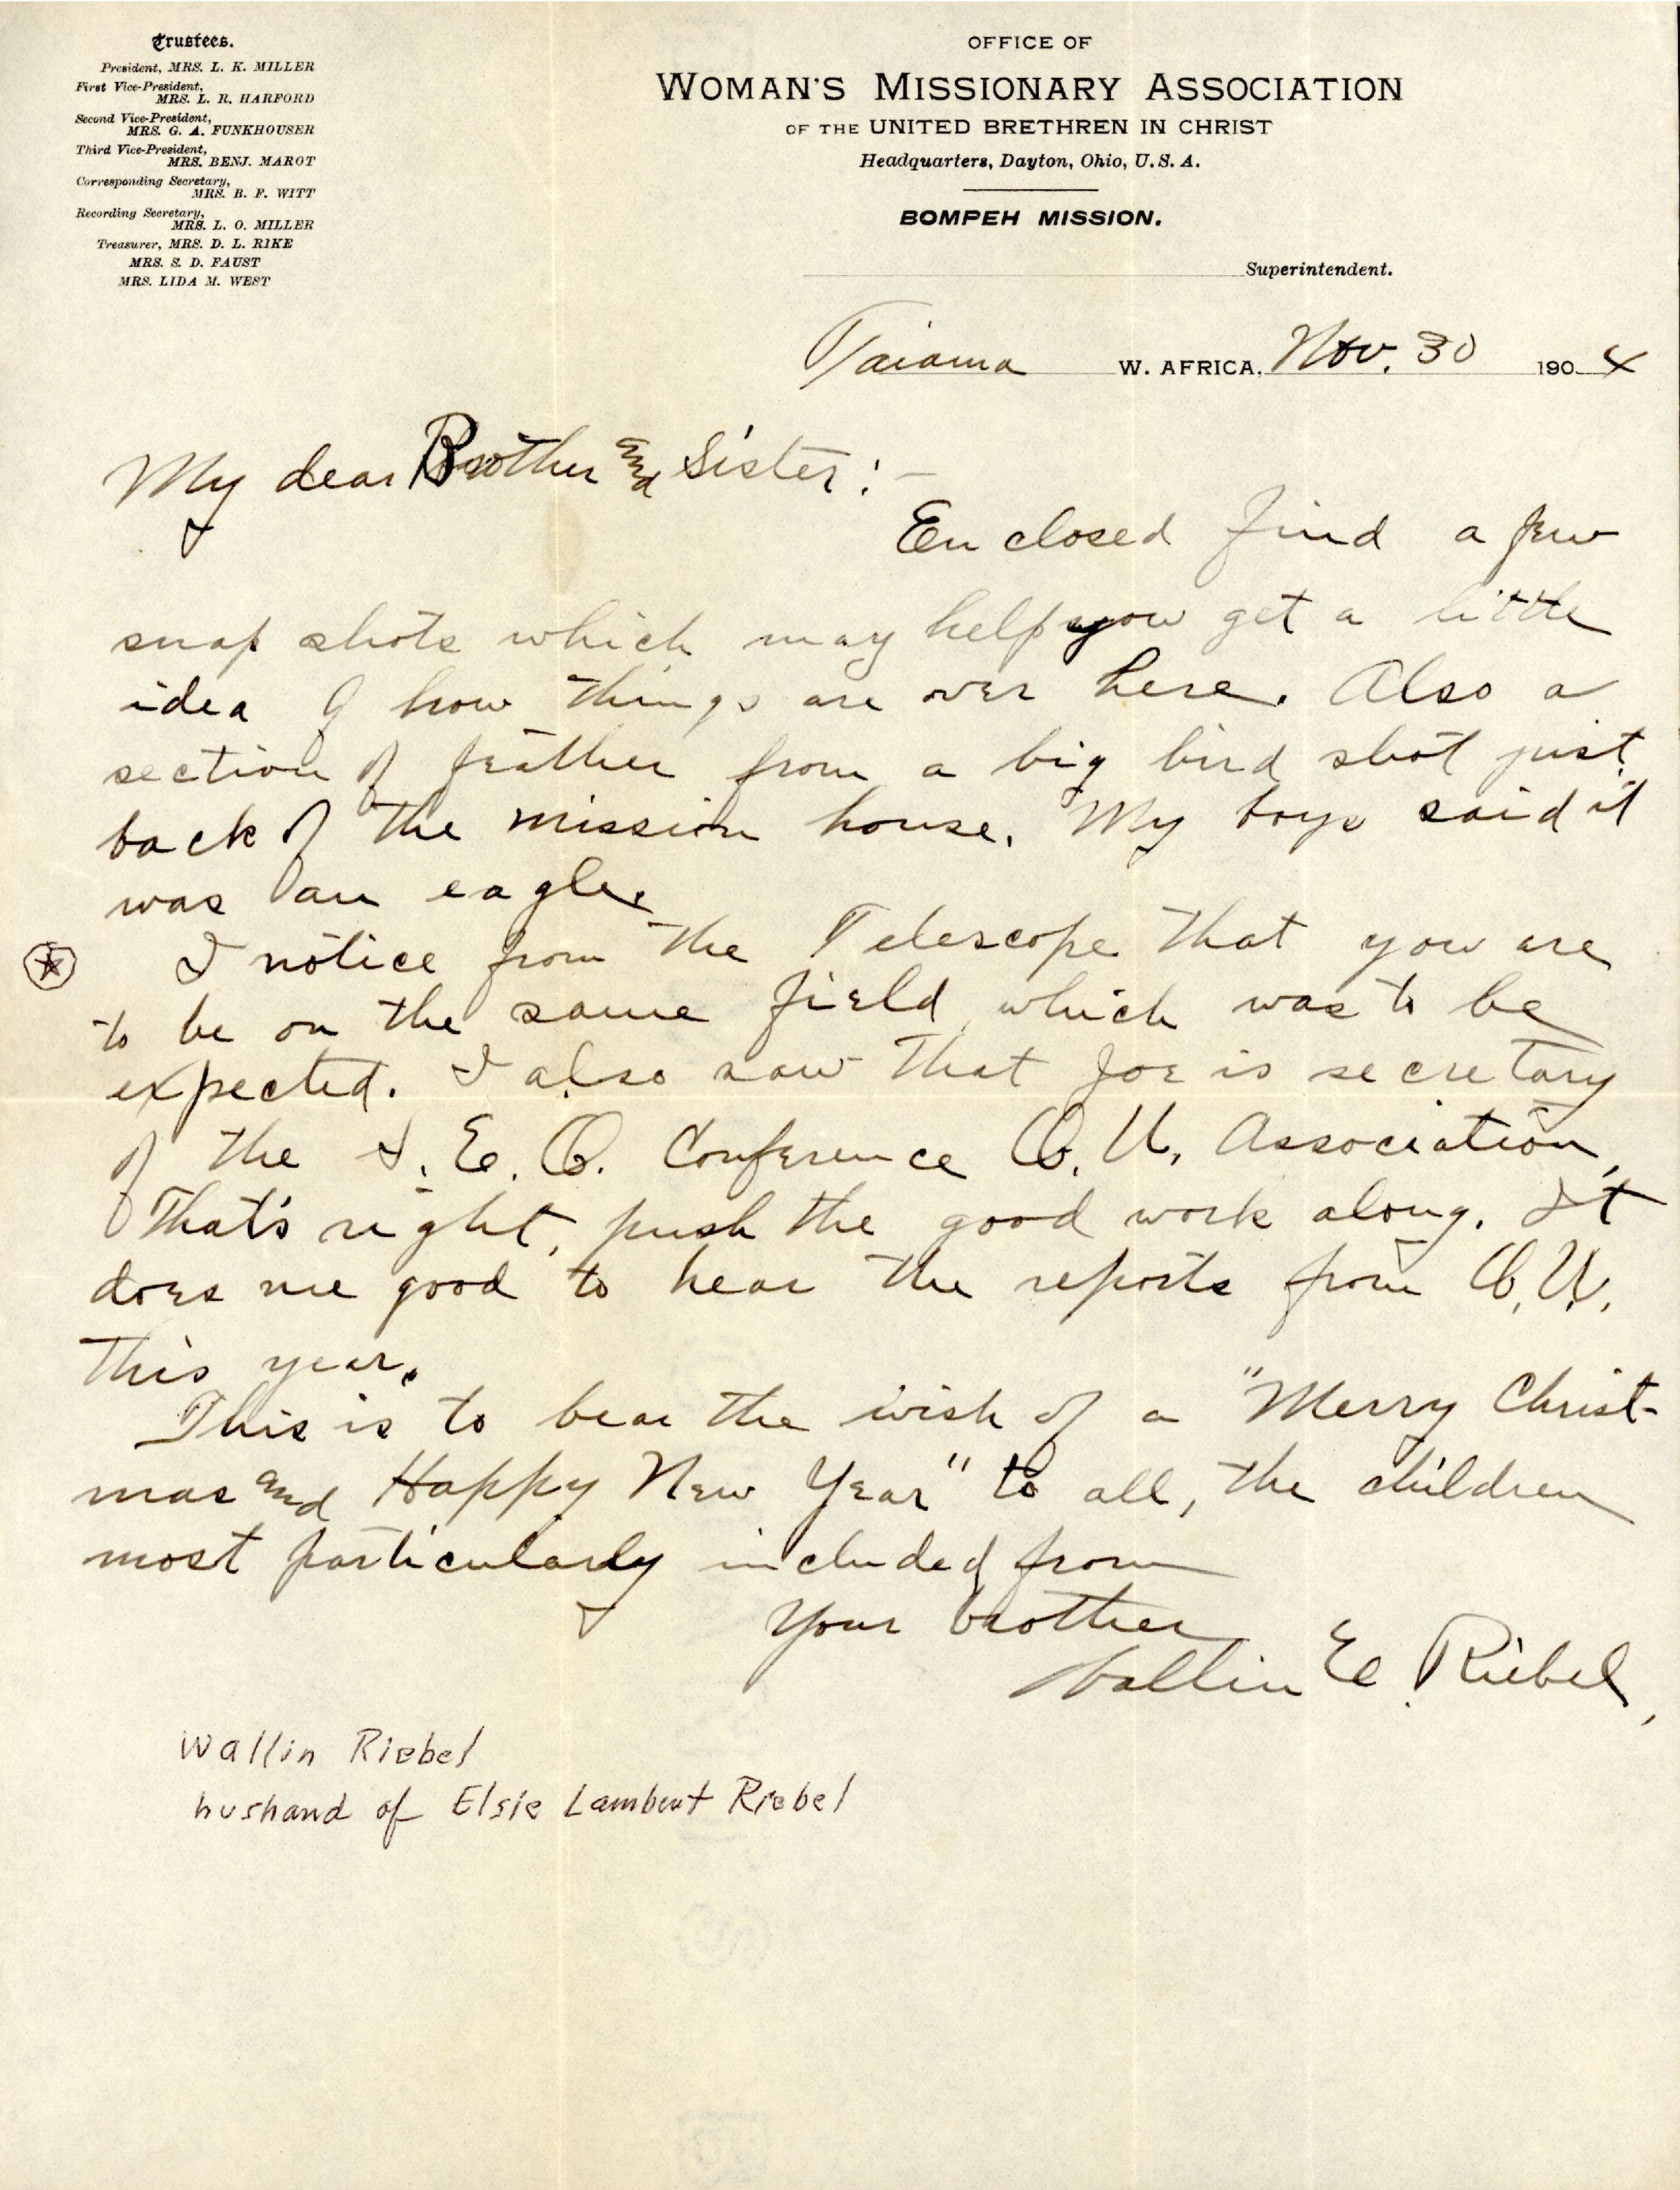 Trustees.
President, MRS. L. K. MILLER
First Vice-President,
MRS. L. R. HARFORD
Second Vice-President,
MRS. G. A. FUNKHOUSER
Third Vice-President,
MRS. BENJ. MAROT
Corresponding Secretary,
MRS. B. F. WITT
Recording Secretary,
MRS. L. O. MILLER
Treasurer, MRS. D. L. RIKE
MRS. S. D. FAUST
MRS. LIDA M. WEST
OFFICE OF
WOMAN'S MISSIONARY ASSOCIATION
OF THE UNITED BRETHREN IN CHRIST
Headquarters, Dayton, Ohio, U.S.A.
BOMPEH MISSION.
Superintendent.
Taiama W. AFRICA, Nov. 30 1904
My dear Brother and Sister:-
Enclosed find a few
snap shots which may help you get a little
idea of how things are over here. Also a
section of feather from a big bird shot just
back of the mission house. My boys said it
was an eagle.
I notice from the Telescope that you are
to be on the same field which was to be
expected. I also saw that Joe is secretary
of the Conference O. U. Association,
That's right, push the good work along. It
does me good to hear the reports from O. U.
this year.
This is to bear the wish of a "Merry Christ-
mas and Happy New Year" to all, the children
most particularly included from
Your brother
Wallin E. Riebel,
Wallin Riebel
husband of Elsie Lambert Riebel